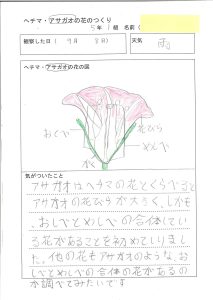 ヘチマ・アサガオの花のつくり
5年1組 名前(
観察した日( 9月 8日) 天気 雨
ヘチマ・アサガオの花の図
おしべ
花びら
めしべ
がく
気がついたこと
アサガオはヘチマの花とくらべると
アサガオの花びらが大きく、しかも
おしべとめしべの合体してい
る花があることを初めてしりまし
た。他の花もアサガオのような、お
しべとめしべの合体の花があるの
か調べてみたいです